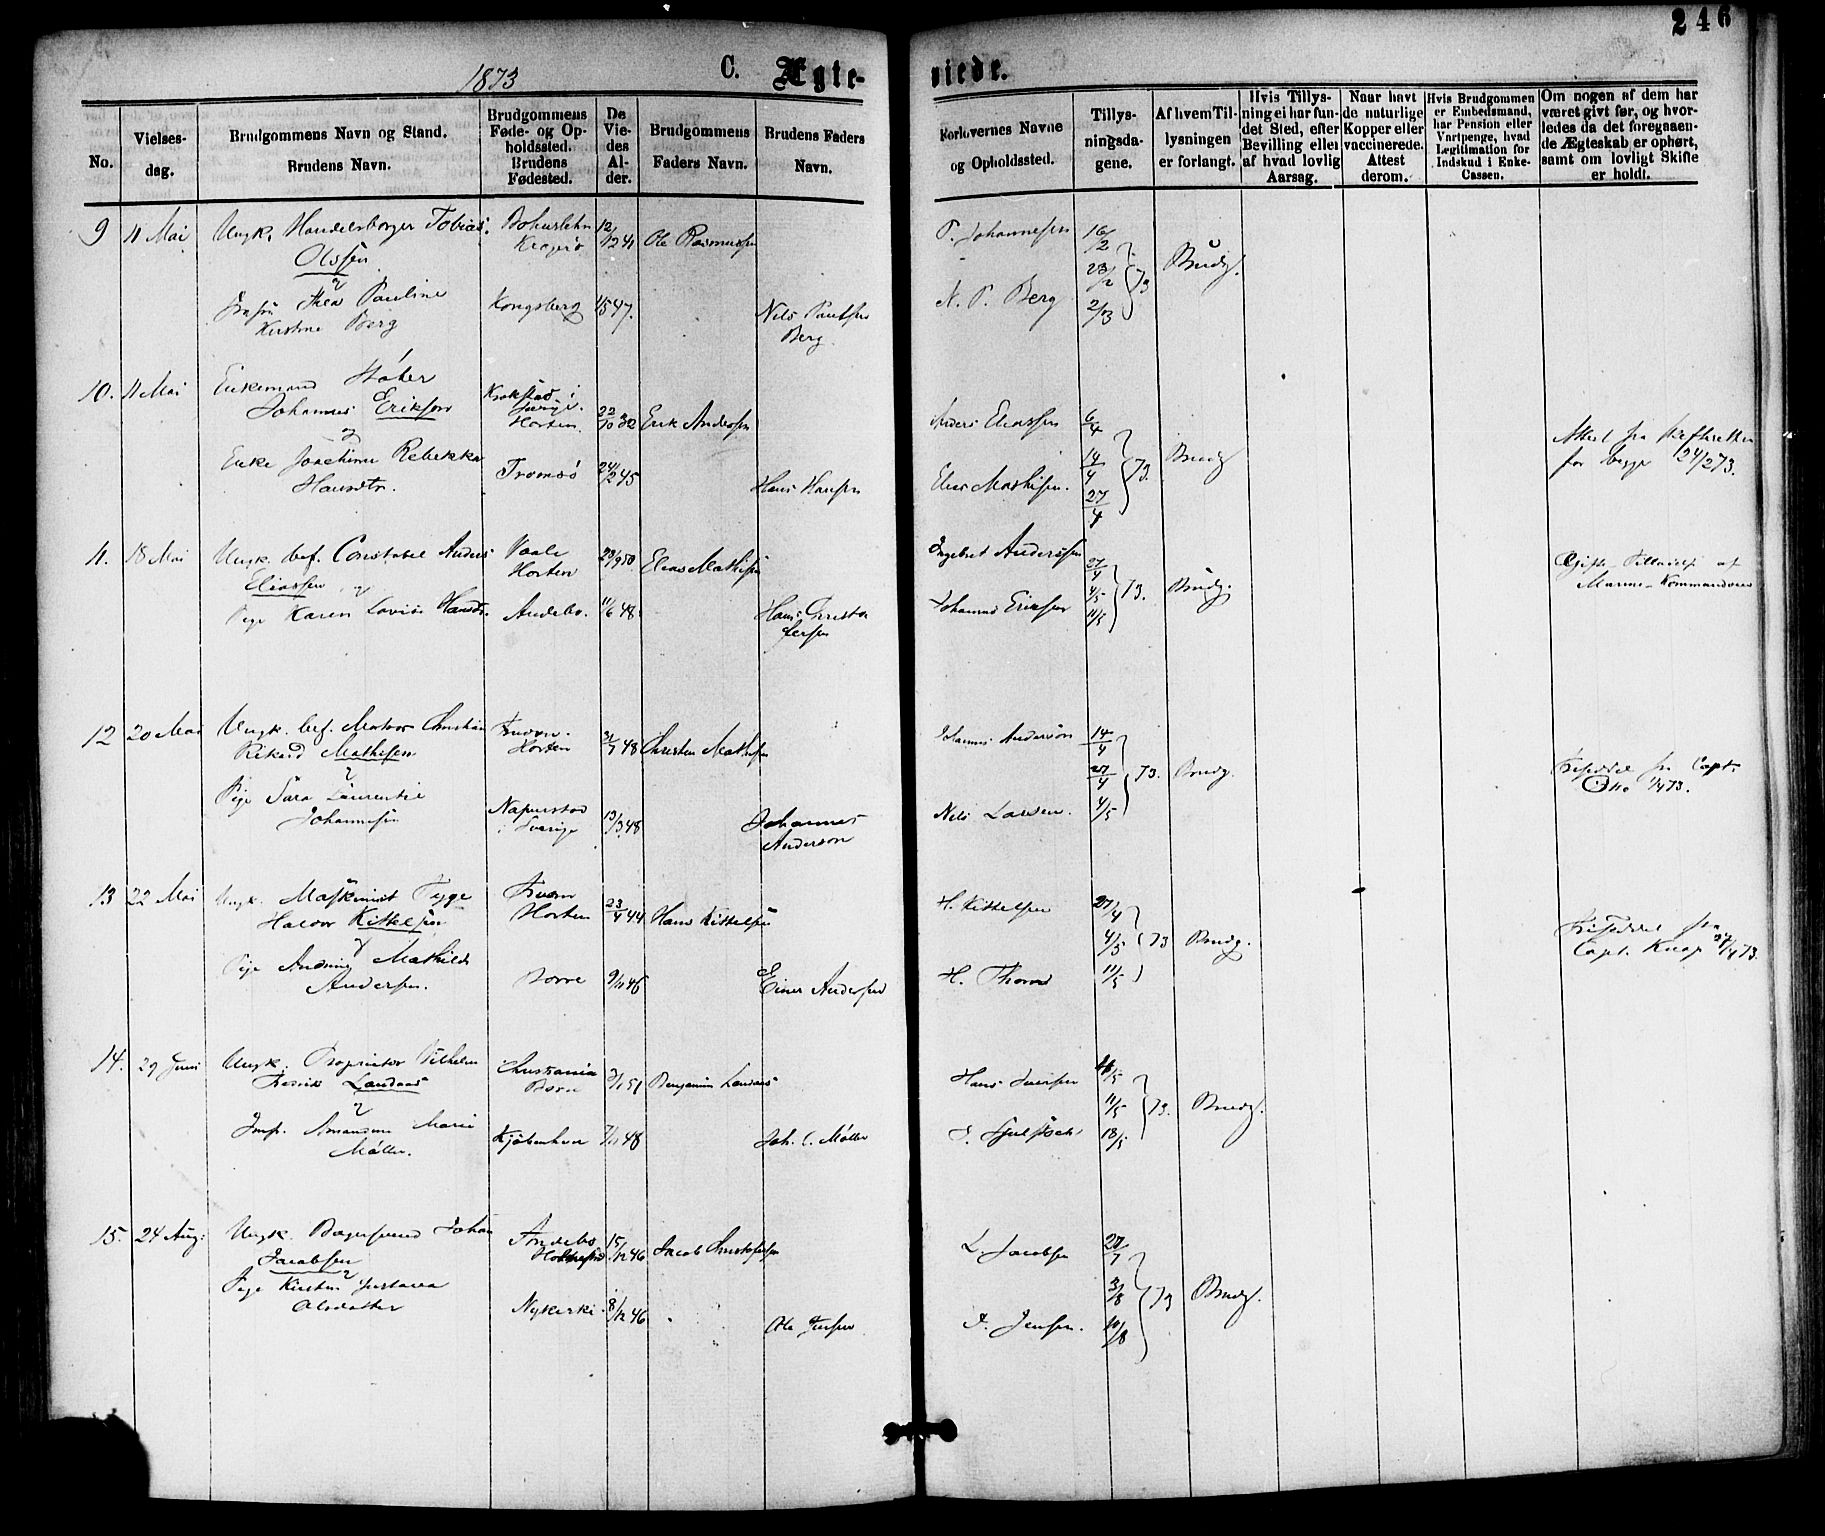 246
1873
C. Ægteviede.
No.
Vielses-
dag.
Brudgommens Navn og Stand.
Brudens Navn.
Brudgommens
Føde- og Op-
holdssted.
Brudens
Fødested.
De
Vie-
des
Al-
der.
Brudgommens
Faders Navn.
Brudens Faders
Navn.
Forlovernes Navne
og Opholdssted.
Tillys-
ningsda-
gene.
Af hvem Til-
lysningen
er forlangt.
Hvis Tillys-
ning ei har fun-
det Sted, efter
Bevilling eller
af hvad lovlig
Aarsag.
Naar havt
de naturlige
Kopper eller
vaccinerede.
Attest
derom.
Hvis Brudgommen
er Embedsmand,
har Pension eller
Vartpenge, hvad
Legitimation for
Indskud i Enke-
Cassen.
Om nogen af dem har
været givt før, og hvor-
ledes da det foregaaen-
de Ægteskab er ophørt,
samt om lovligt Skifte
er holdt.
9 11 Mai Ungk. Handelsborger Tobias Bohuslehn 12/12 41 Ole Rasmussen P. Johannesen 16/2
Olssen Kragerø
& 23/2 73 Brudg.
Thea Pauline Kongsberg 1/5 47. Nils Paulsen N. P. Berg 2/3
Kirstine Berg Berg.
10. 11 Mai Enkemand
Johannes Erikson Krokstad i Sverige. Horten 22/10 32 Erik Andersen Anders Eliassen 6/4
og 14/4 73. Brudg
Enke Joachime Rebekka Tromsø 24/12 45 Hans Hansen Elias Mathisen. 27/4
Hansdtr.
Attest fra Skifteretten
for begge 24/2 73.
11. 18 Mai Ungk. bef. Constabel Anders Vaale 29/9 50. Elias Mathisen Ingebret Anderssen 27/4
Eliassen & Horten 4/5 73. Brudg.
Pige Karen Lovise Hansdr. Andebo. 11/6 48. Hans Christo Johannes Eriksen 11/5
fersen
Gifte Tilladelse af
Marine-Kommandoen
12 20 Mai Ungk. bef. Matros Christian 31/7 48 Christen Mathisen Johannes Anderson 14/4
Rikard Mathisen Horten
& 27/4 73. Brudg.
Pige Sara Laurentie Naverstad 13/3 48 Johannes Nils Larsen. 4/5
Johannesen i Sverige Anderson
Friseddel fra Capt.
13 22 Mai Ungk. Maskinist Tygge 23/4 44 Hans Kittelsen H. Kittelsen 27/4
Halvor Kittelsen Horten
& 4/5 73 Brudg.
Pige Andrine Mathilde Borre 9/11 46 Einer Andersen H. Thorne 11/5
Andersen.
Friseddel fra
Capt. Knap 24/4 73.
14. 29 Juni Ungk. Proprietær Vilhelm Christiania 3/1 51 Benjamin Landaas Hans Iversen 4/5
Fredrik Landaas Borre
& 11/5 73. Brudg.
Jmf. Amandine Marie Kjøbenhavn 7/11 48 Joh. C. Møller 18/5
Møller.
15. 24 Aug: Ungk. Bagersvend Johan Andebo 15/12 46 Jacob Christofersen L. Jacobsen 27/7
Jacobsen Holmestrand
& 3/8 73 Brudg.
Pige Kirsten Gustava Nykirke. 8/12 46 Ole Jensen J. Jensen. 10/8
Olsdatter